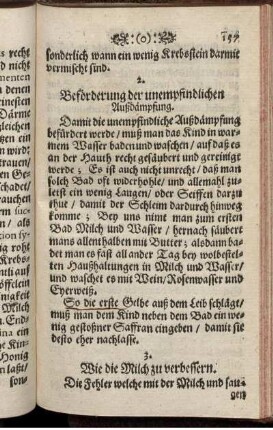 :(o): 159
sonderlich wann ein wenig Krebsstein darmit
vermischt sind.
2.
Beförderung der unempfindlichen
Außdämpfung.
Damit die unempfindliche Außdämpfung
befürdert werde / muß man das Kind in war-
mem Wasser baden und waschen / auf daß es
an der Hauth recht gesäubert und gereiniget
werde; Es ist auch nicht unrecht / daß man
solch Bad oft widerhohle / und allemahl zu-
letst ein wenig Laugen / oder Seiffen darzu
thu / damit der Schleim dardurch hinweg
komme; Bey uns nimt man zum ersten
Bad Milch und Wasser / hernach säubert
mans allenthalben mit Butter; alsdann ba-
det man es fast all ander Tag bey wolbestel-
ten Haußhaltungen in Milch und Wasser /
und waschet es mit Wein / Rosenwasser und
Eyerweiß.
So die erste Gelbe auß dem Leib schlägt /
muß man dem Kind neben dem Bad ein we-
nig gestoßner Saffran eingeben / damit sie
desto eher nachlasse.
3.
Wie die Milch zu verbessern.
Die Fehler welche mit der Milch und sau-
gen